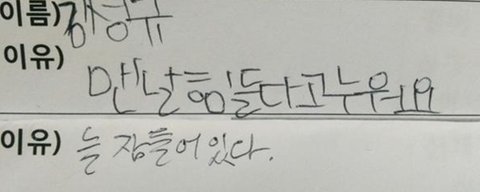 이름)
이유)
맨날 힘들다고 누워요
이유) 늘 잠들어 있다.